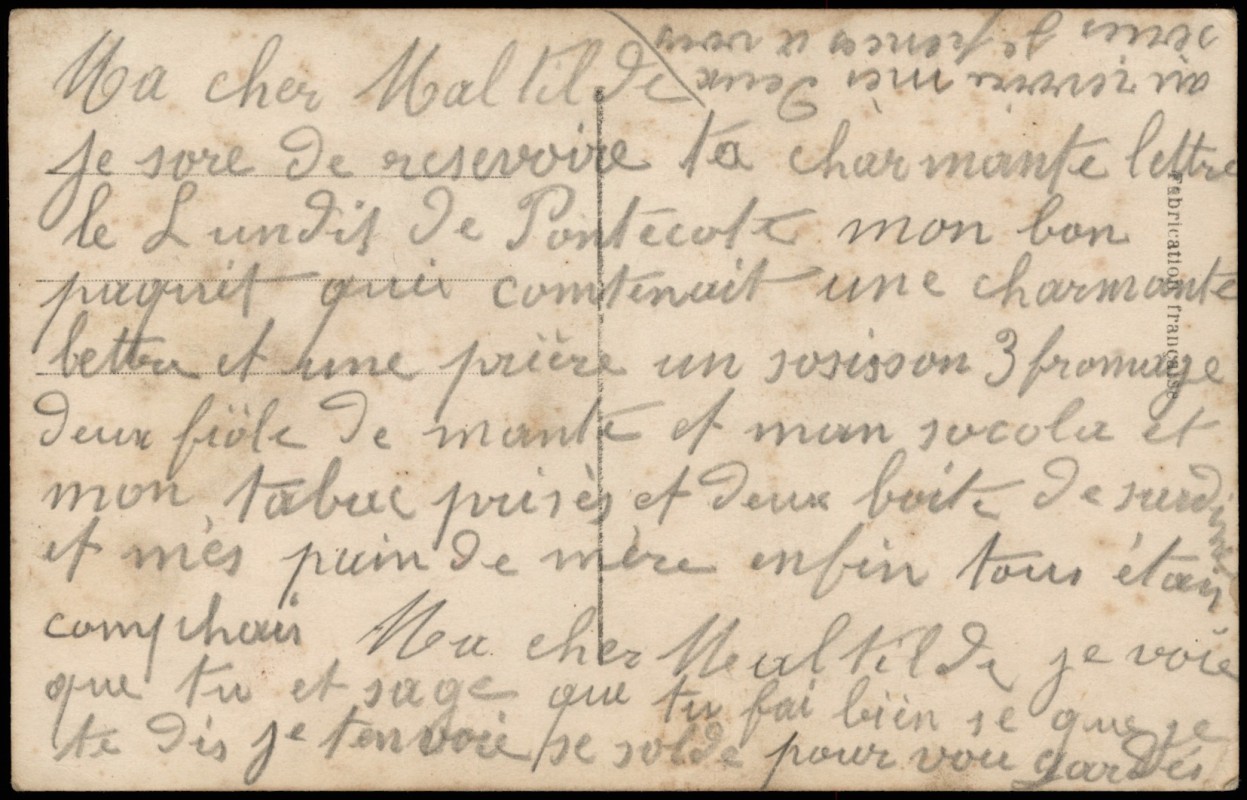 Ma cher Maltilde
Je sore de resevoire ta charmante lettre
le Lundit de Pontecote mon bon
paquit qui contenait une charmante
lettra et une prière un sosisson 3 fromage
deux fiöle de mante et mon socola et
mon tabac prisès et deux boite de sardine
et mès pain de mère enfin tous étais
comphais Ma cher Mealtilde je voie
que tu et sage que tu fai biën se que je
te dis je tenvoie se solde pour vou gardés
au revoir mes Deux
Je prences a vous
Fabrication française